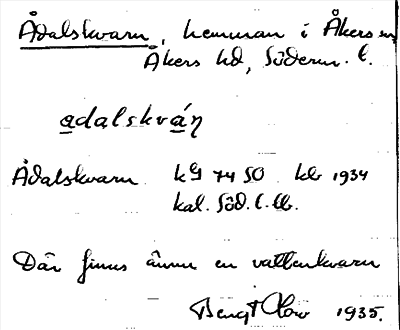 Ådalskvarn, hemman i Åkers sn
Åkers hd, Söderm. l.
adalskváṇ
Ådalskvarn kG 74 SO kbl 1934
kal. Söd. l. lb.
Där finns ännu en vattenkvarn
Bengt Olow 1935.